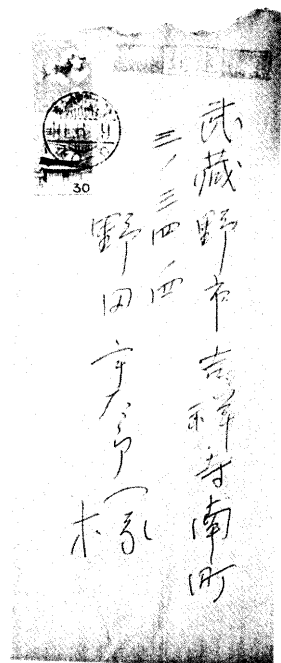 武蔵野市吉祥寺南町
三ノ三四ノ四
野田宇太郎様
30